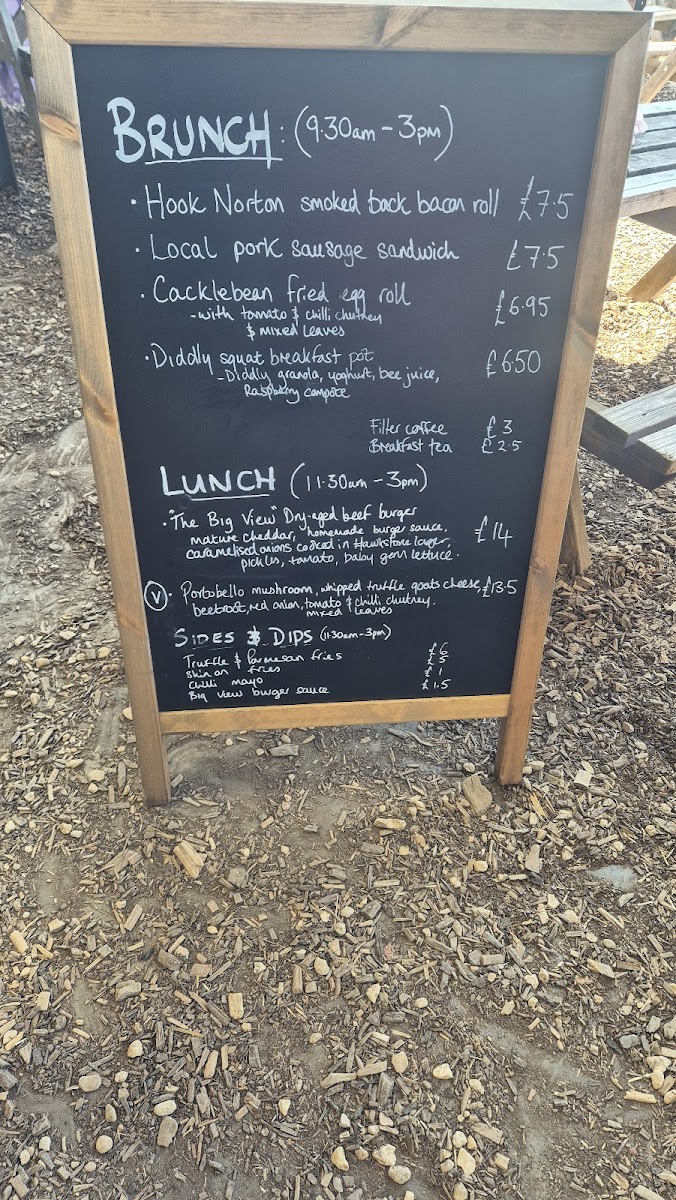 BRUNCH: (9.30am - 3pm)
• Hook Norton smoked back bacon roll £7.5
• Local pork sausage sandwich £7.5
• Cacklebean fried egg roll £6.95
- with tomato & chilli chutney
& mixed leaves
• Diddly squat breakfast pot £650
- Diddly granola, yoghurt, bee juice,
Raspberry compote
Filter coffee £3
Breakfast tea £2.5
LUNCH (11.30am - 3pm)
• "The Big View" Dry-aged beef burger £14
mature cheddar, homemade burger sauce,
caramelised onions cooked in Hawkstone lager,
pickles, tomato, baby gem lettuce.
(V) • Portobello mushroom, whipped truffle goats cheese, £13.5
beetroot, red onion, tomato & chilli chutney.
mixed leaves
SIDES & DIPS (11.30am - 3pm)
Truffle & Parmesan fries £6
skin on fries £5
Chilli mayo £1
Big View burger sauce £1.5